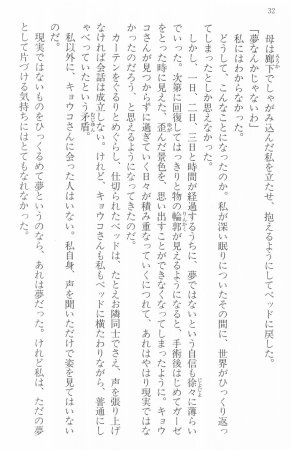 32
母は廊下でしゃがみ込んだ私を立たせ、抱えるようにしてベッドに戻した。
「夢なんかじゃないわ」
私にはわからなかった。
どうして、こんなことになったのか。私が深い眠りについたその間に、世界がひっくり返っ
てしまったとしか思えなかった。
しかし、一日、二日、三日と時間が経過するうちに、夢ではないという自信も徐々に薄らい
でいった。次第に回復してはっきりと物の輪郭が見えるようになると、手術後はじめてガーゼ
をとった時に見えた、歪んだ景色を、思い出すことができなくなってしまったように。キョウ
コさんが見つからずに過ぎていく日々が積み重なっていくにつれて、あれはやはり現実ではな
かったのだろう、と思えるようになってきたのだ。
カーテンをぐるりとめぐらし、仕切られたベッドは、たとえお隣同士でさえ、声を張り上げ
なければ会話は成立しない。けれど、キョウコさんも私もベッドに横たわりながら、普通にし
ゃべっていたという矛盾。
私以外に、キョウコさんに会った人はいない。私自身、声を聞いただけで姿を見てはいない
のだ。
現実ではないものをひっくるめて夢というのなら、あれは夢だった。けれど私は、ただの夢
として片づける気持ちにはとてもなれなかった。